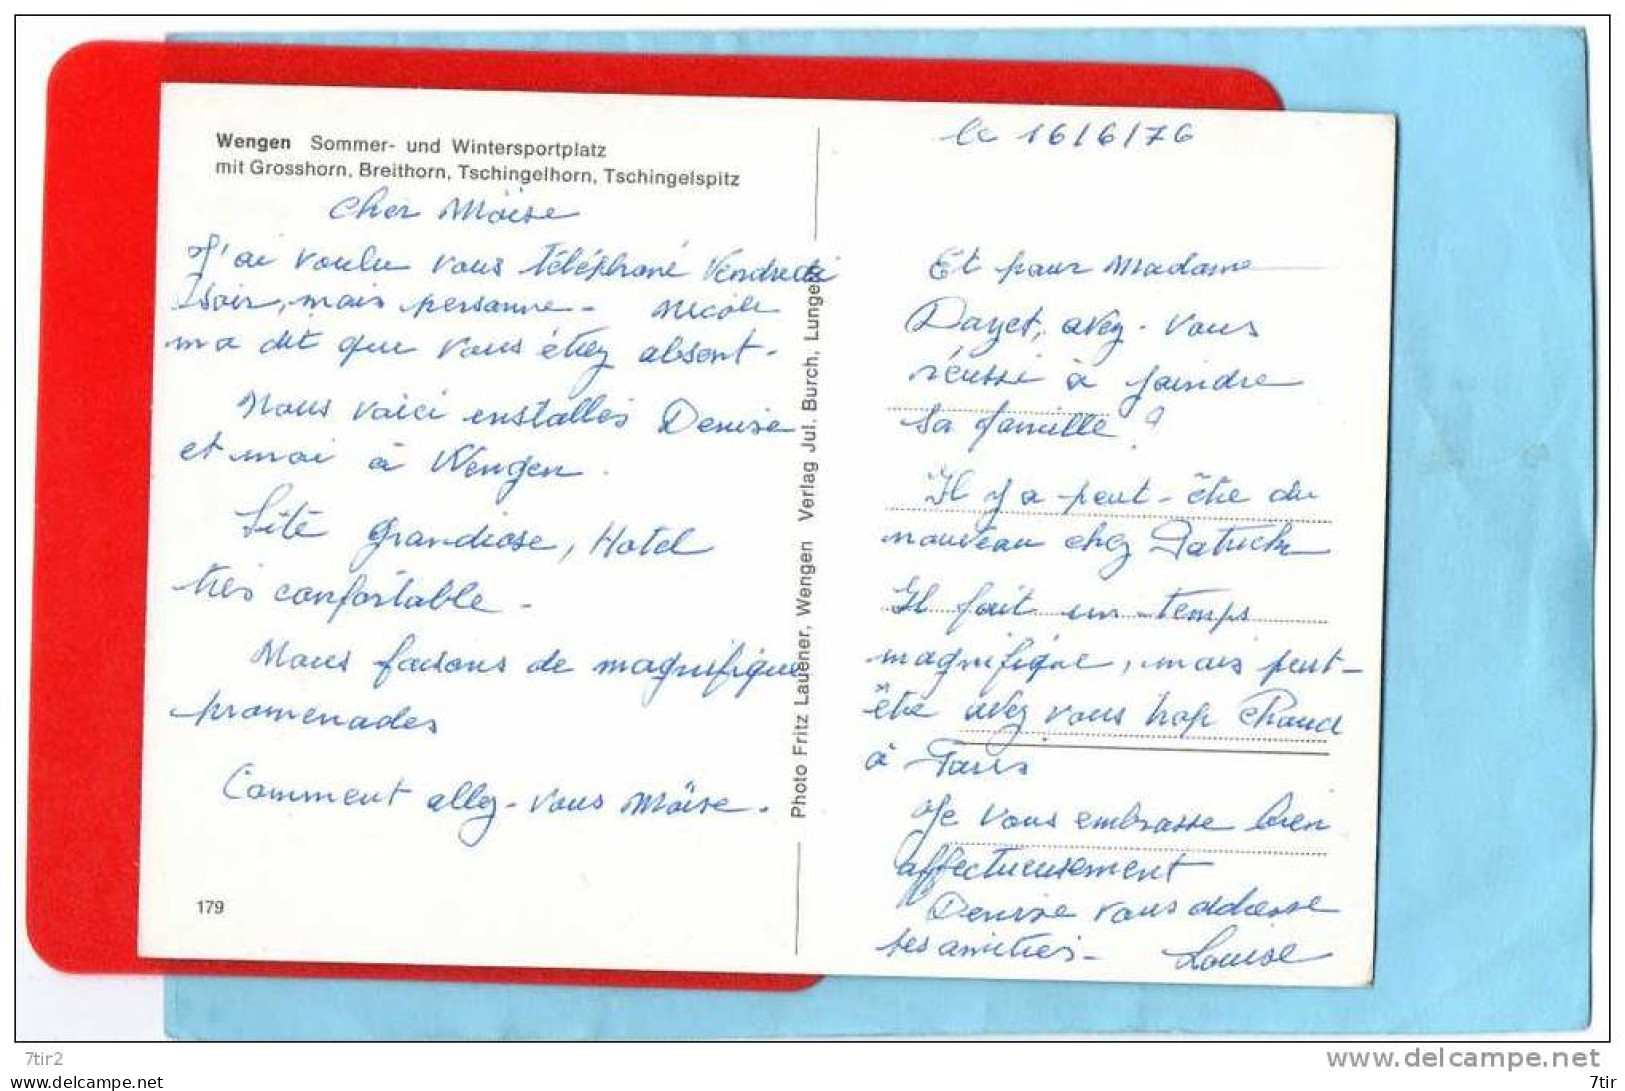 Wengen Sommer- und Wintersportplatz
mit Grosshorn, Breithorn, Tschingelhorn, Tschingelspitz
Cher Moïse
J'ai voulu vous téléphoné Vendredi
soir, mais personne - Nicole
m a dit que vous étiez absent.
Nous voici installés Denise
et moi à Wengen.
Site grandiose, Hotel
très confortable -
Nous faisons de magnifique
promenades
Comment allez-vous Moïse.
179
Photo Fritz Lauener, Wengen Verlag Jul. Burch, Lungern
le 16/6/76
Et pour Madame
Dayet, avez-vous
réussi à joindre
sa famille ?
Il y a peut-être du
nouveau chez
Il fait un temps
magnifique, mais peut-
être avez vous trop chaud
à Paris
Je vous embrasse bien
affectueusement
Denise vous adresse
ses amitiés - Louise
7tir2
www.delcampe.net
www.delcampe.net
7tir